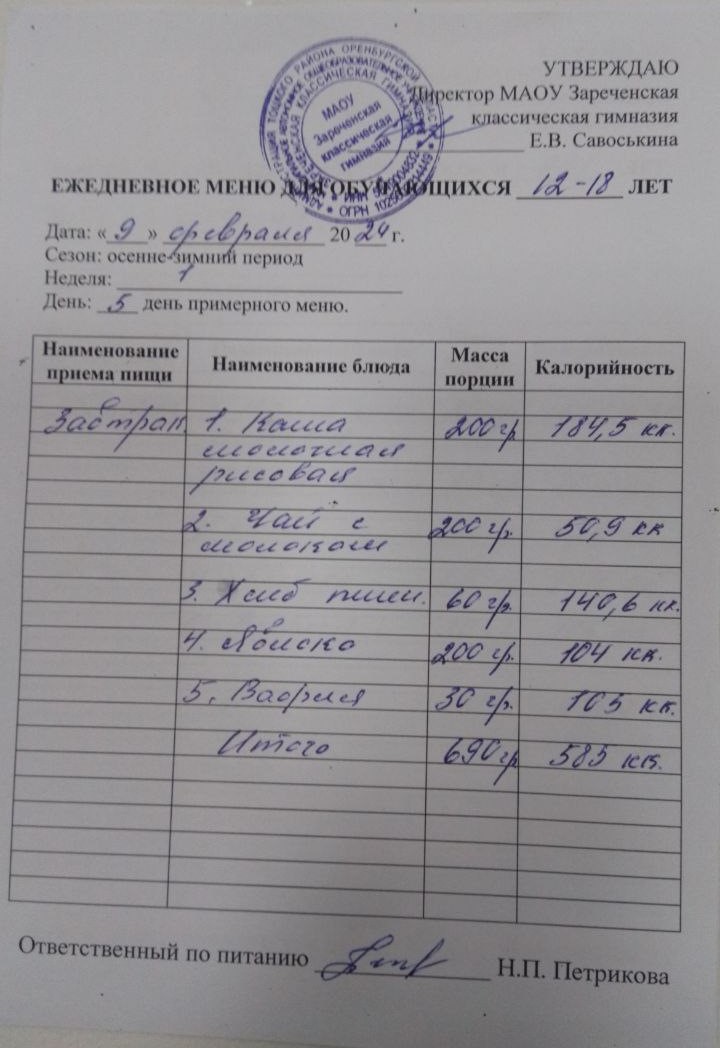 УТВЕРЖДАЮ
Директор МАОУ Зареченская
классическая гимназия
Е.В. Савоськина
МАОУ
Зареченская
классическая
гимназия
ЕЖЕДНЕВНОЕ МЕНЮ ДЛЯ ОБУЧАЮЩИХСЯ 12-18 ЛЕТ
Дата: «9» февраля 2024 г.
Сезон: осенне-зимний период
Неделя: 1
День: 5 день примерного меню.
Наименование приема пищи Наименование блюда Масса порции Калорийность
Завтрак 1. Каша 200 гр 184,5 кк.
молочная
рисовая
2. Чай с 200 гр. 50,9 кк
молоком
3. Хлеб пшен. 60 гр. 140,6 кк.
4. Яблоко 200 гр. 104 кк.
5. Вафля 30 гр. 105 кк.
Итого 690 гр 585 кк.
Ответственный по питанию Н.П. Петрикова